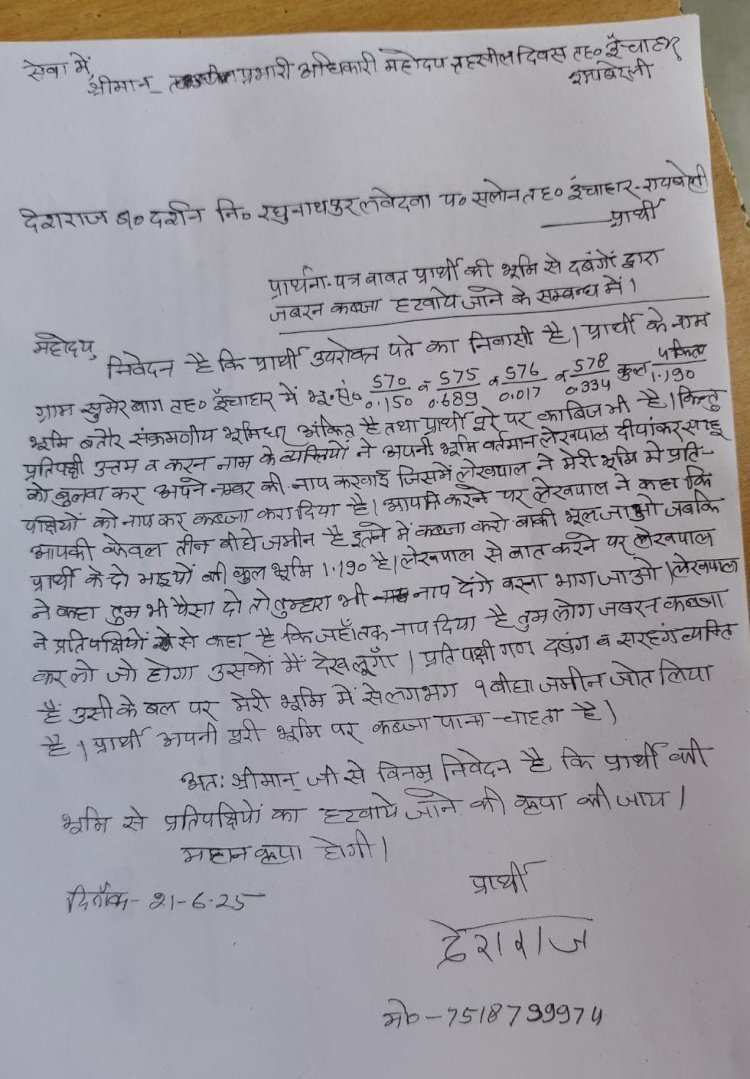 सेवा में,
श्रीमान प्रभारी अधिकारी महोदय तहसील दिवस तह० ऊँचाहार
रायबरेली
देशराज ब० दर्शन नि० रघुनाथपुर लवेदवा प० सलोन तह० ऊंचाहार-रायबरेली
प्रार्थी
प्रार्थना-पत्र बावत प्रार्थी की भूमि से दबंगों द्वारा
जबरन कब्जा हटवाये जाने के सम्बन्ध में।
महोदय,
निवेदन है कि प्रार्थी उपरोक्त पते का निवासी है। प्रार्थी के नाम
ग्राम सुमेरबाग तह० ऊँचाहार में भू०सं० 570/0.150 व 575/0.689 व 576/0.017 व 578/0.334 कुल 4 किता/1.190
भूमि बतौर संक्रमणीय भूमिधर अंकित है तथा प्रार्थी पूरे पर काबिज भी है। किन्तु
प्रतिपक्षी उत्तम व करन नाम के व्यक्तियों ने अपनी भूमि वर्तमान लेखपाल दीपांकर साहू
को बुलवा कर अपने नम्बर की नाप करवाई जिसमें लेखपाल ने मेरी भूमि में प्रति-
पक्षियों को नाप कर कब्जा करा दिया है। आपत्ति करने पर लेखपाल ने कहा कि
आपकी केवल तीन बीघे जमीन है इतने में कब्जा करो बाकी भूल जाओ जबकि
प्रार्थी के दो भाइयों की कुल भूमि 1.190 है। लेखपाल से बात करने पर लेखपाल
ने कहा तुम भी पैसा दो तो तुम्हारा भी नाप देंगे वरना भाग जाओ। लेखपाल
ने प्रतिपक्षियों से कहा है कि जहाँ तक नाप दिया है तुम लोग जबरन कब्जा
कर लो जो होगा उसको मैं देख लूगाँ। प्रतिपक्षी गण दबंग व सरहंग व्यक्ति
हैं उसी के बल पर मेरी भूमि में से लगभग १ बीघा जमीन जोत लिया
है। प्रार्थी अपनी पूरी भूमि पर कब्जा पाना चाहता है।
अतः श्रीमान् जी से विनम्र निवेदन है कि प्रार्थी की
भूमि से प्रतिपक्षियों का हटवाये जाने की कृपा की जाय।
महान कृपा होगी।
प्रार्थी
दिनाँक- 21-6-25
देशराज
मो०-7518799974